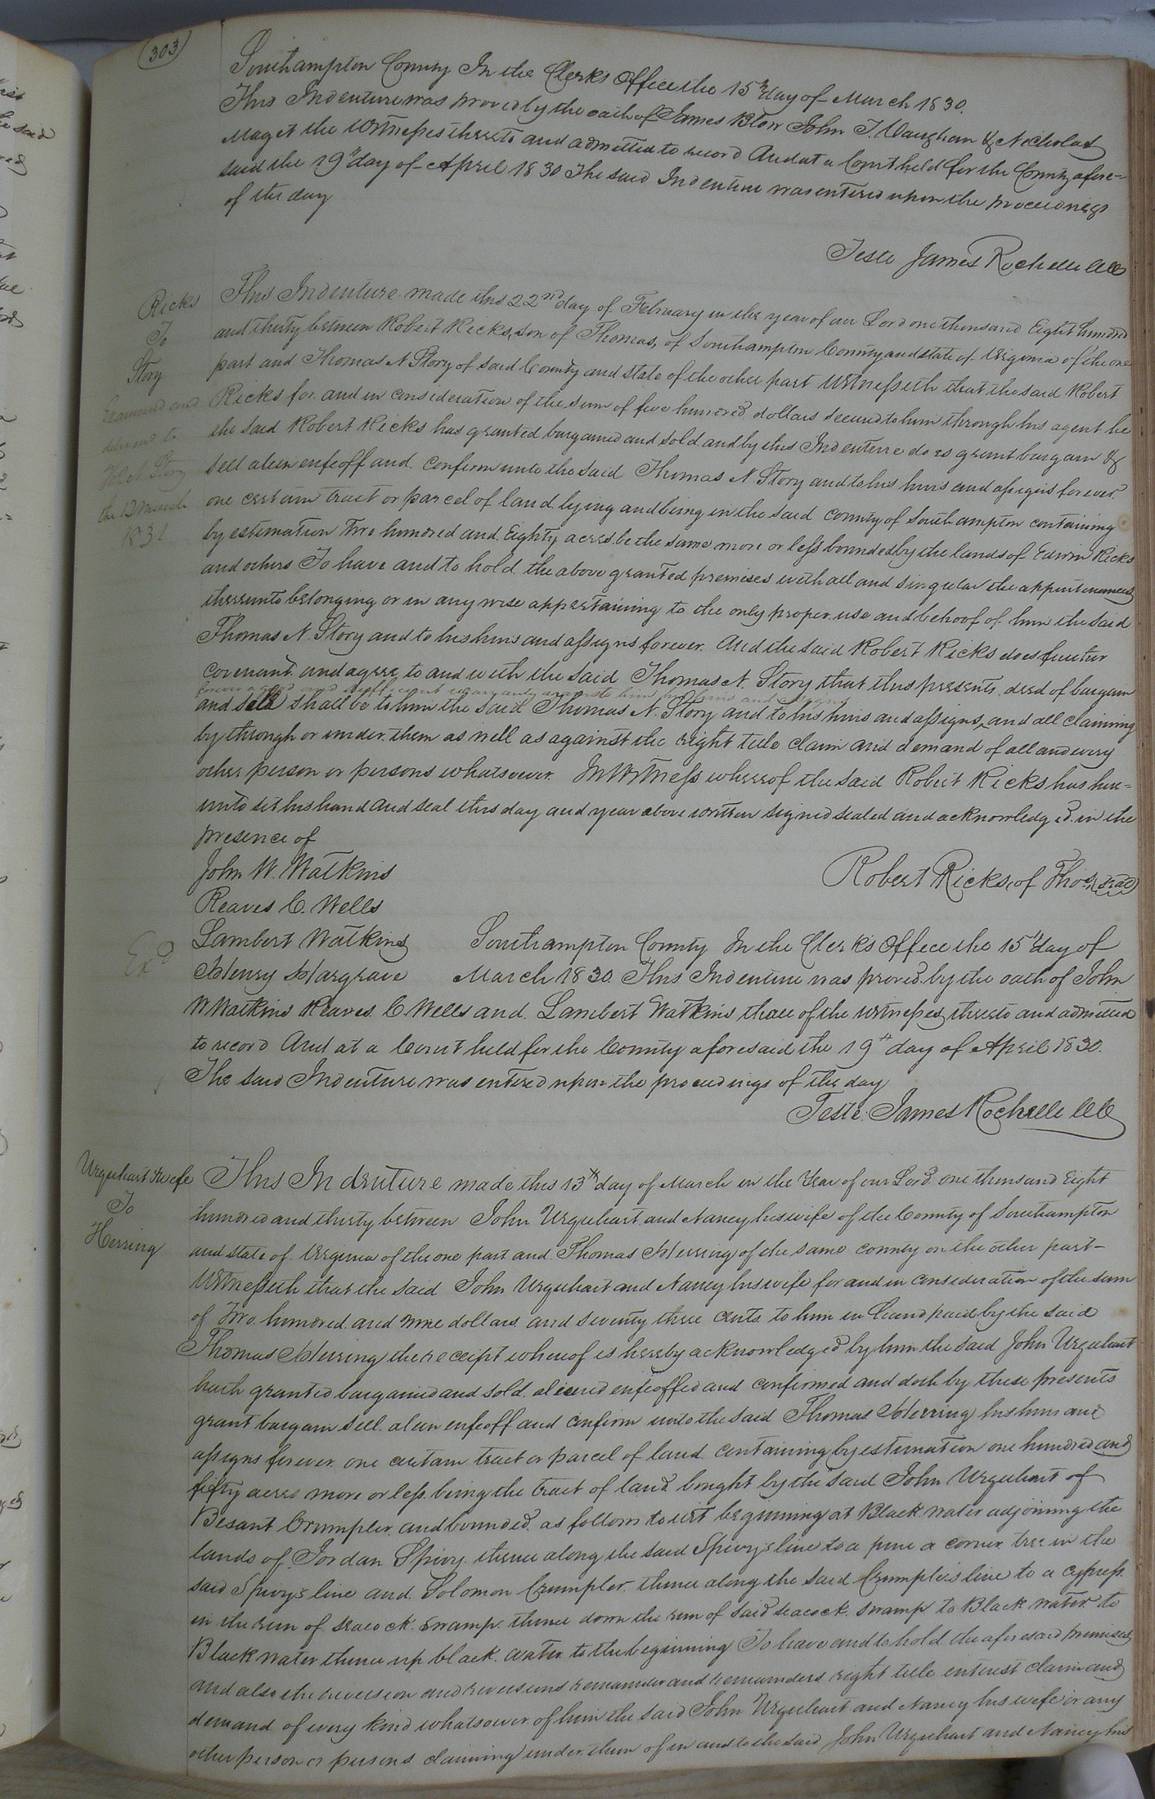 303
Southampton County In the Clerks Office the 15th day of March 1830.
This Indenture was proved by the oath of James Blow John T. Vaughan & Nicholas
Maget the Witnesses thereto and admitted to record And at a Court held for the County afore=
said the 19th day of April 1830 The said Indenture was entered upon the proceedings
of the day
Teste James Rochelle CC
Ricks
To
Story
Examined and
delivered to
Thos N Story
the 12 March
1831
This Indenture made this 22nd day of February in the year of our Lord one thousand Eight hundred
and thirty between Robert Ricks, son of Thomas, of Southampton County and state of Virginia of the one
part and Thomas N Story of said County and state of the other part Witnesseth that the said Robert
Ricks for and in consideration of the sum of five hundred dollars secured to him through his agent he
the said Robert Ricks has granted bargained and sold and by this Indenture does grant bargain &
sell alien enfeoff and confirm unto the said Thomas N Story and to his heirs and assigns forever
one certain tract or parcel of land lying and being in the said County of Southampton containing
by estimation Two hundred and Eighty acres be the same more or less bounded by the lands of Edwin Ricks
and others To have and to hold the above granted premises with all and singular the appurtenances
thereunto belonging or in any wise appertaining to the only proper use and behoof of him the said
Thomas N. Story and to his heirs and assigns forever. And the said Robert Ricks does further
covenant and agree to and with the said Thomas N. Story that this presents deed of bargain
and sale shall be to him the said Thomas N. Story and to his heirs and assigns, and all claiming
by through or under them as well as against the right title claim and demand of all and every
other person or persons whatsoever. In Witness whereof the said Robert Ricks has here=
unto set his hand and seal this day and year above written signed sealed and acknowledged in the
presence of
John W. Watkins
Robert Ricks, of Thos. (seal)
Reaves C. Wells
Exd
Lambert Watkins
Henry Hargrave
Southampton County In the Clerk's Office the 15th day of
March 1830. This Indenture was proved by the oath of John
W Watkins Reaves C. Wells and Lambert Watkins three of the witnesses thereto and admitted
to record And at a Court held for the County aforesaid the 19th day of April 1830.
The said Indenture was entered upon the proceedings of the day
Teste James Rochelle CC
Urquhart & wife
To
Herring
This Indenture made this 13th day of March in the Year of our Lord one thousand Eight
hundred and thirty between John Urquhart and Nancy his wife of the County of Southampton
and state of Virginia of the one part and Thomas Herring of the same county on the other part-
Witnesseth that the said John Urquhart and Nancy his wife for and in consideration of the sum
of Two hundred and nine dollars and seventy three cents to him in hand paid by the said
Thomas Herring the receipt whereof is hereby acknowledged by him the said John Urquhart
hath granted bargained and sold aliened enfeoffed and confirmed and doth by these presents
grant bargain sell alien enfeoff and confirm unto the said Thomas Herring his heirs and
assigns forever one certain tract or parcel of land containing by estimation one hundred and
fifty acres more or less being the tract of land bought by the said John Urquhart of
Besant Crumpler and bounded as follows to wit beginning at Black water adjoining the
lands of Jordan Spivy thence along the said Spivys line to a pine a corner tree in the
said Spivys line and Solomon Crumpler thence along the said Crumplers line to a cypress
in the run of seacock swamp thence down the run of said seacock swamp to Black water to
Black water thence up black water to the beginning To have and to hold the aforesaid premises
and also the reversion and reversions remainder and remainders right title interest claim and
demand of every kind whatsoever of him the said John Urquhart and Nancy his wife or any
other person or persons claiming under them of in and to the said John Urquhart and Nancy his